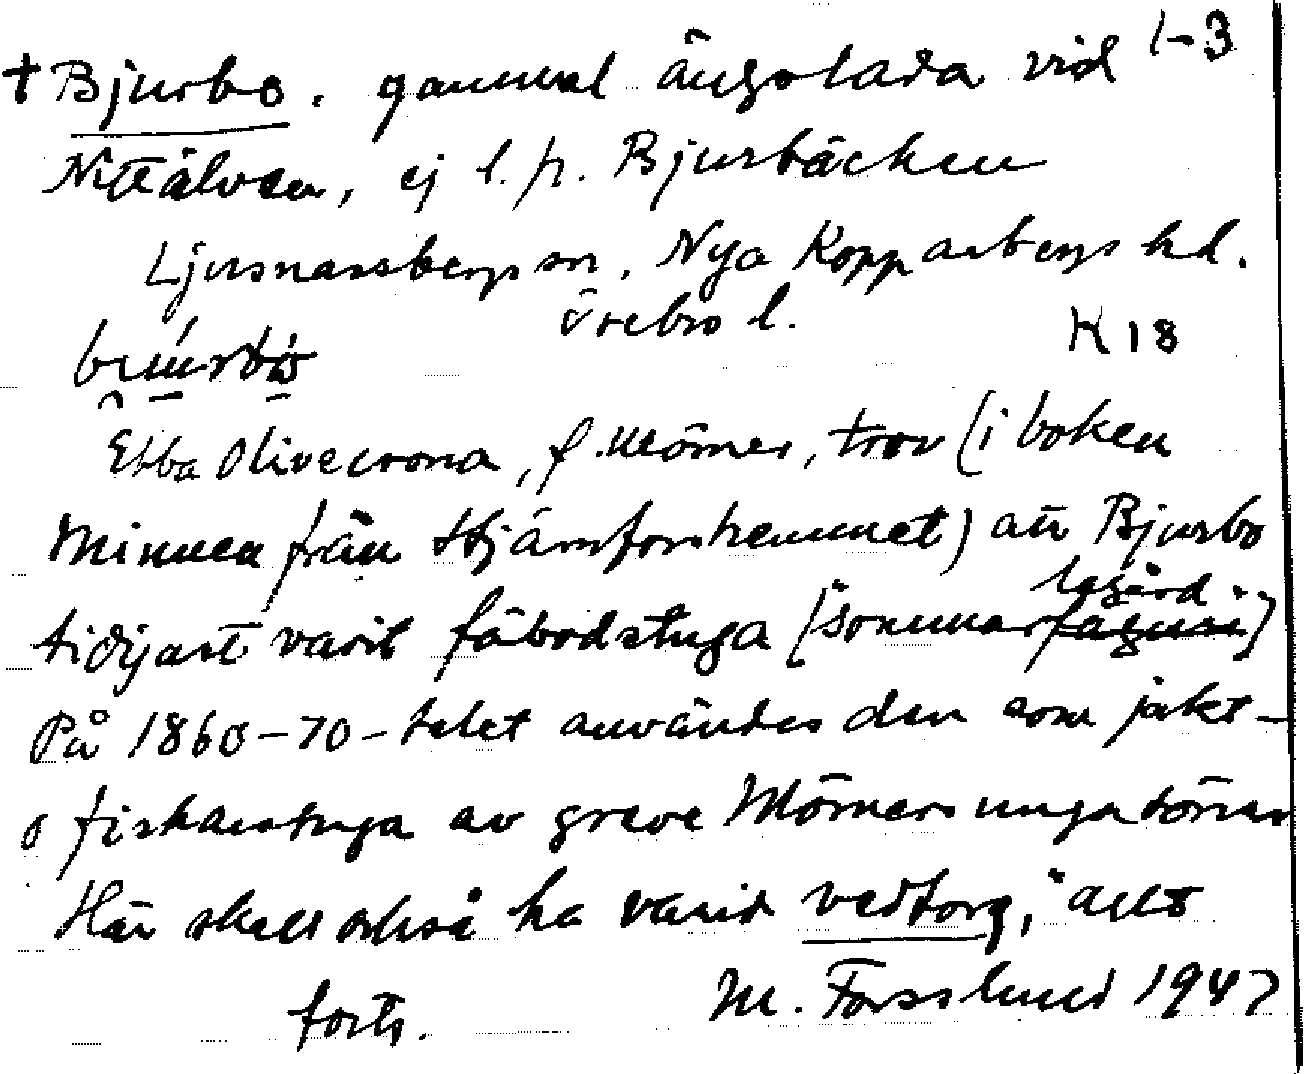 † Bjurbo. gammal ängslada vid 1-3
Nittälven, ej l. p. Bjurbäcken
Ljusnarsbergs sn, Nya Kopparbergs hd.
Örebro l. K 18
Ebba Olivecrona, f. Mörner, trov (i boken
Minnen från Hjärnforshemmet) att Bjurbo
tidigast varit fäbodstuga (sommarlagård)
På 1860-70-talet användes den som jakt-
o fiskarstuga av greve Mörners unga söner
Här skall också ha varit vedtorg, allt
forts. M. Forsslund 1947